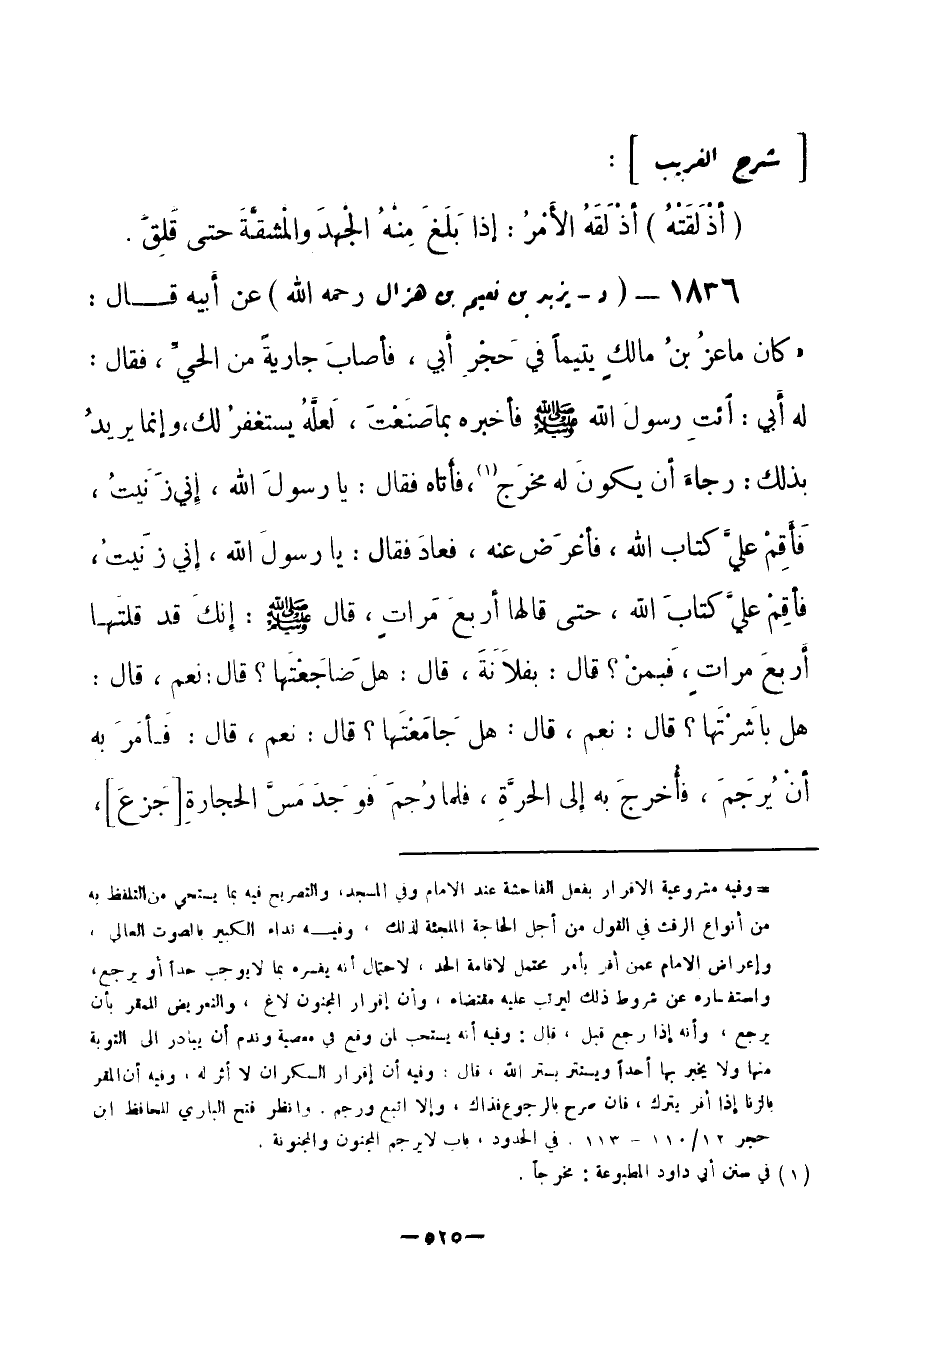 [ شرح الغريب ] :
( أَذْلَقَتْهُ ) أَذْلَقَهُ الأَمْرُ : إذا بَلَغَ مِنْهُ الْجُهدَ والْمَشقَّةَ حتى قَلِقَ .
١٨٣٦ – ( د – يزيد بن نعيم بن هزال رحمه الله ) عن أبيه قال :
« كان ماعزُ بنُ مالكٍ يتيماً في حَجْرِ أبي ، فأصابَ جاريةً من الحيِّ ، فقال :
له أَبي : ائتِ رسولَ الله ﷺ فأخبره بما صَنَعْتَ ، لَعلَّهُ يستغفرُ لك، وإنما يريدُ
بذلك : رجاءَ أن يكونَ له مخرَج(١)، فأتاه فقال : يا رسولَ الله ، إني زَنَيتُ ،
فَأَقِمْ عليَّ كتاب الله ، فأعْرَض عنه ، فعادَ فقال : يا رسولَ الله ، إني زنَيتُ ،
فأقِمْ عليَّ كتابَ الله ، حتى قالها أربعَ مَرات ، قال ﷺ : إنكَ قد قلتَها
أربعَ مرات ، فَبمنْ ؟ قال : بفُلاَنَةَ ، قال : هل ضَاجَعْتَها ؟ قال : نعم ، قال :
هل بَاشَرْتَها ؟ قال : نعم ، قال : هل جَامَعْتَها ؟ قال : نعم ، قال : فَأمَرَ به
أنْ يُرجَمَ ، فأُخرجَ به إلى الحرَّةِ ، فلما رُجِمَ فَوَجَدَ مَسَّ الحجارةِ [جَزعَ] ،
= وفيه مشروعية الاقرار بفعل الفاحشة عند الامام وفي المسجد، والتصريح فيه بما يستحي من التلفظ به
من أنواع الرفث في القول من أجل الحاجة الملجئة لذلك ، وفيه نداء الكبير بالصوت العالي ،
وإعراض الامام عمن أقر بأمر محتمل لاقامة الحد ، لاحتمال أنه يفسره بما لا يوجب حداً أو يرجع،
واستفساره عن شروط ذلك ليرتب عليه مقتضاه ، وأن إقرار المجنون لاغ ، والتعريض للمقر بأن
يرجع ، وأنه إذا رجع قبل ، قال : وفيه أنه يستحب لمن وقع في معصية وندم أن يبادر الى التوبة
منها ولا يخبر بها أحداً ويستتر بستر الله ، قال : وفيه أن إقرار السكران لا أثر له ، وفيه أن المقر
بالزنا إذا أقر يترك ، فان صرح بالرجوع فذاك ، وإلا اتبع ورجم . وانظر فتح الباري للحافظ ابن
حجر ١٢/١١٠ – ١١٣ . في الحدود ، باب لا يرجم المجنون والمجنونة .
(١) في سنن أبي داود المطبوعة : مخرجاً .
— ٥٢٥ —